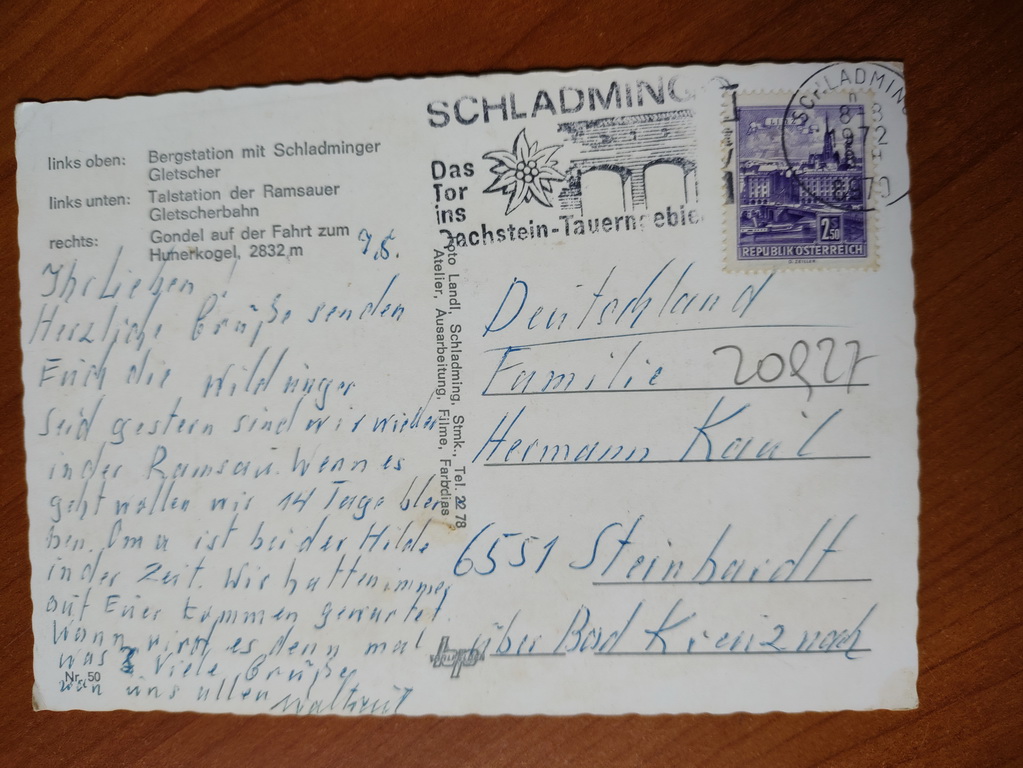 links oben: Bergstation mit Schladminger
Gletscher
links unten: Talstation der Ramsauer
Gletscherbahn
rechts: Gondel auf der Fahrt zum
Hunerkogel, 2832 m
SCHLADMING
Das
Tor
ins
Dachstein-Tauerngebie
SCHLADMING
1972
8970
LINZ
2 S 50
REPUBLIK ÖSTERREICH
Foto Landl, Schladming, Stmk., Tel. 22 78
Atelier, Ausarbeitung, Filme, Farbdias
Ihr Lieben!
Herzliche Grüße senden
Euch die Wildinger
Seid gestern sind wir wieder
in der Ramsau. Wenn es
geht wollen wir 14 Tage blei
ben. Oma ist bei der Hilde
in der Zeit. Wir hatten immer
auf Euer kommen gewartet.
Wann wird es denn mal
was? Viele Grüße
von uns allen Waltraud
Nr. 50
Deutschland
Familie 20927
Hermann Kaul
6551 Steinhardt
über Bad Kreuznach